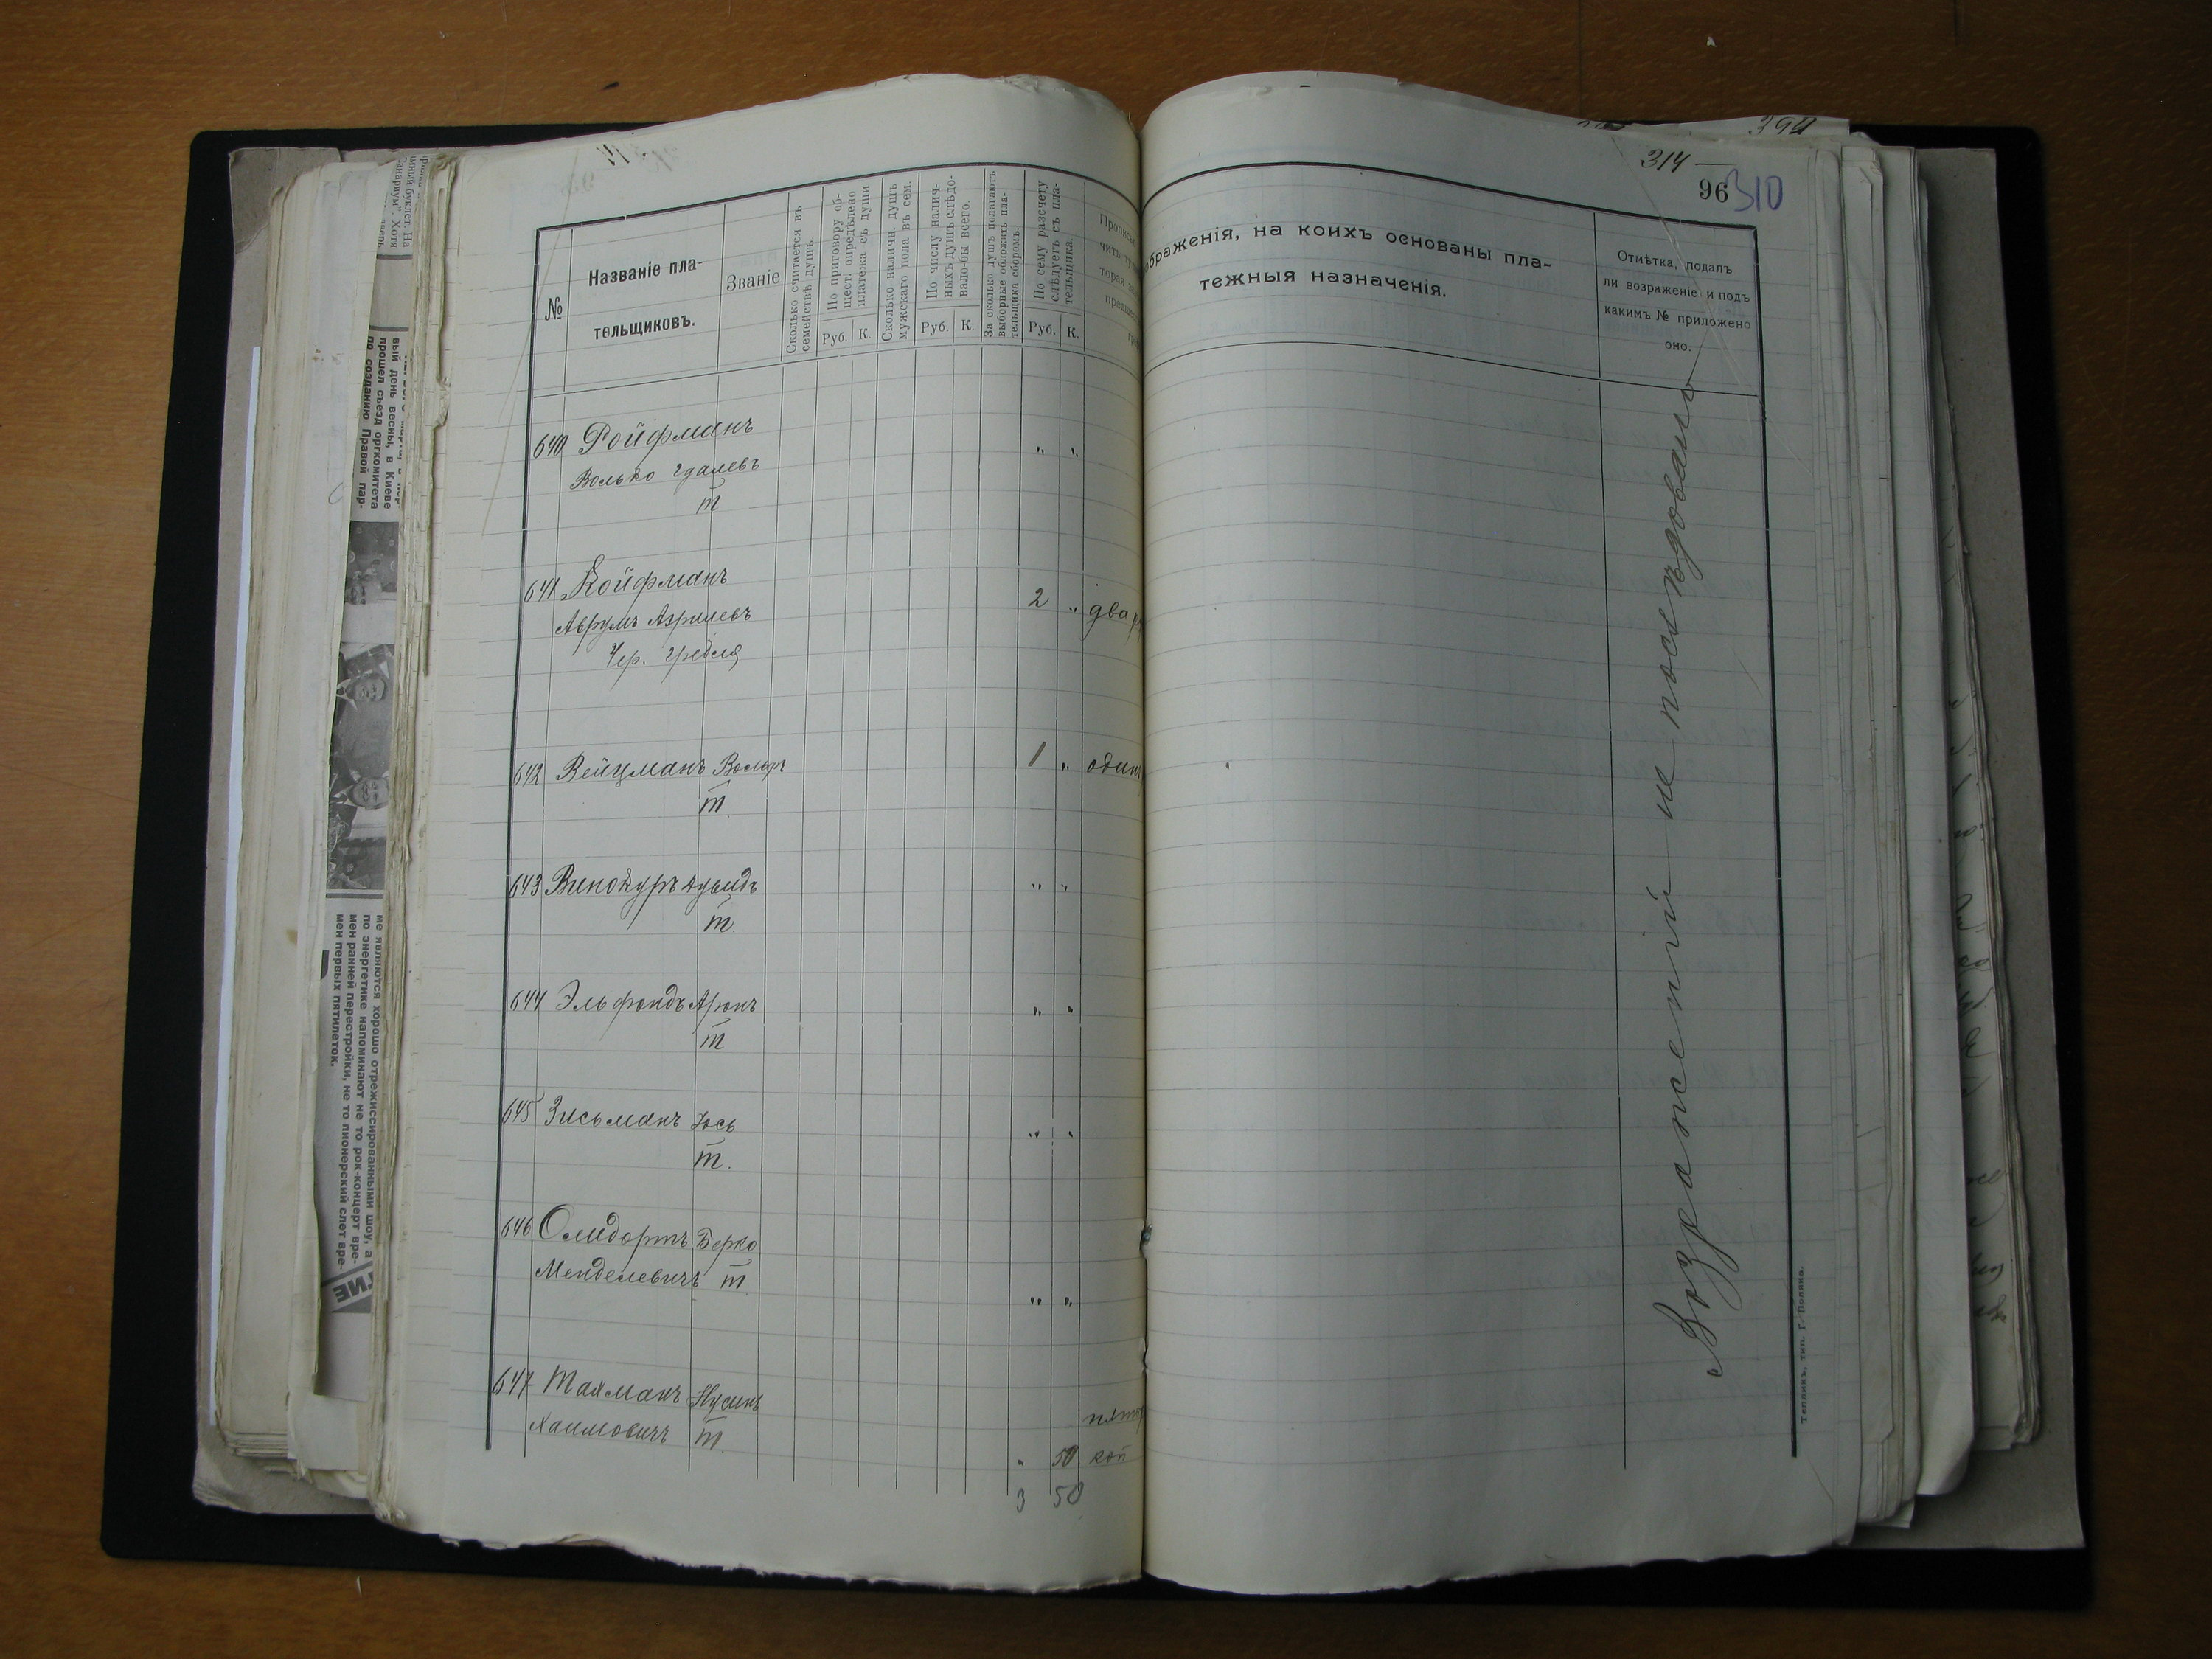 394
314 —
96 310
№
Названіе пла-
тельщиковъ.
Званіе
Сколько считается въ
семействѣ душъ.
По приговору об-
щест. опредѣлено
платежа съ души
Руб. К.
Сколько наличн. душъ
мужскаго пола въ сем.
По числу налич-
ныхъ душъ слѣдо-
вало-бы всего.
Руб. К.
За сколько душъ полагаютъ
выборные обложить пла-
тельщика сборомъ.
По сему разсчету
слѣдуетъ съ пла-
тельщика.
Руб. К.
ображенія, на коихъ основаны пла-
тежныя назначенія.
Отмѣтка, подалъ
ли возраженіе и подъ
какимъ № приложено
оно.
640 Ройфманъ " "
Волько Гдалевъ
т
641 Ройфманъ 2 " два
Аврумъ Азрилевъ
Чер. Гребля
642 Вейцманъ Вольфъ 1 " один
т
643 Винокуръ Дувидъ " "
т
644 Эльфондъ Аронъ " "
т
645 Зисьманъ Іось " "
т.
646 Олидортъ Берко
Менделевичъ т " "
647 Тахманъ Нусинъ
Хаимовичъ т. " 50 коп
3 50
Возраженій не послѣдовало
Тепликъ, тип. Г. Поляка.
вый день весны, в Киеве
прошел съезд оргкомитета
по созданию Правой пар-
ме являются хорошо отрежиссированными шоу, а
по энергетике напоминают не то рок-концерт вре-
мен ранней перестройки, не то пионерский слет вре-
мен первых пятилеток.